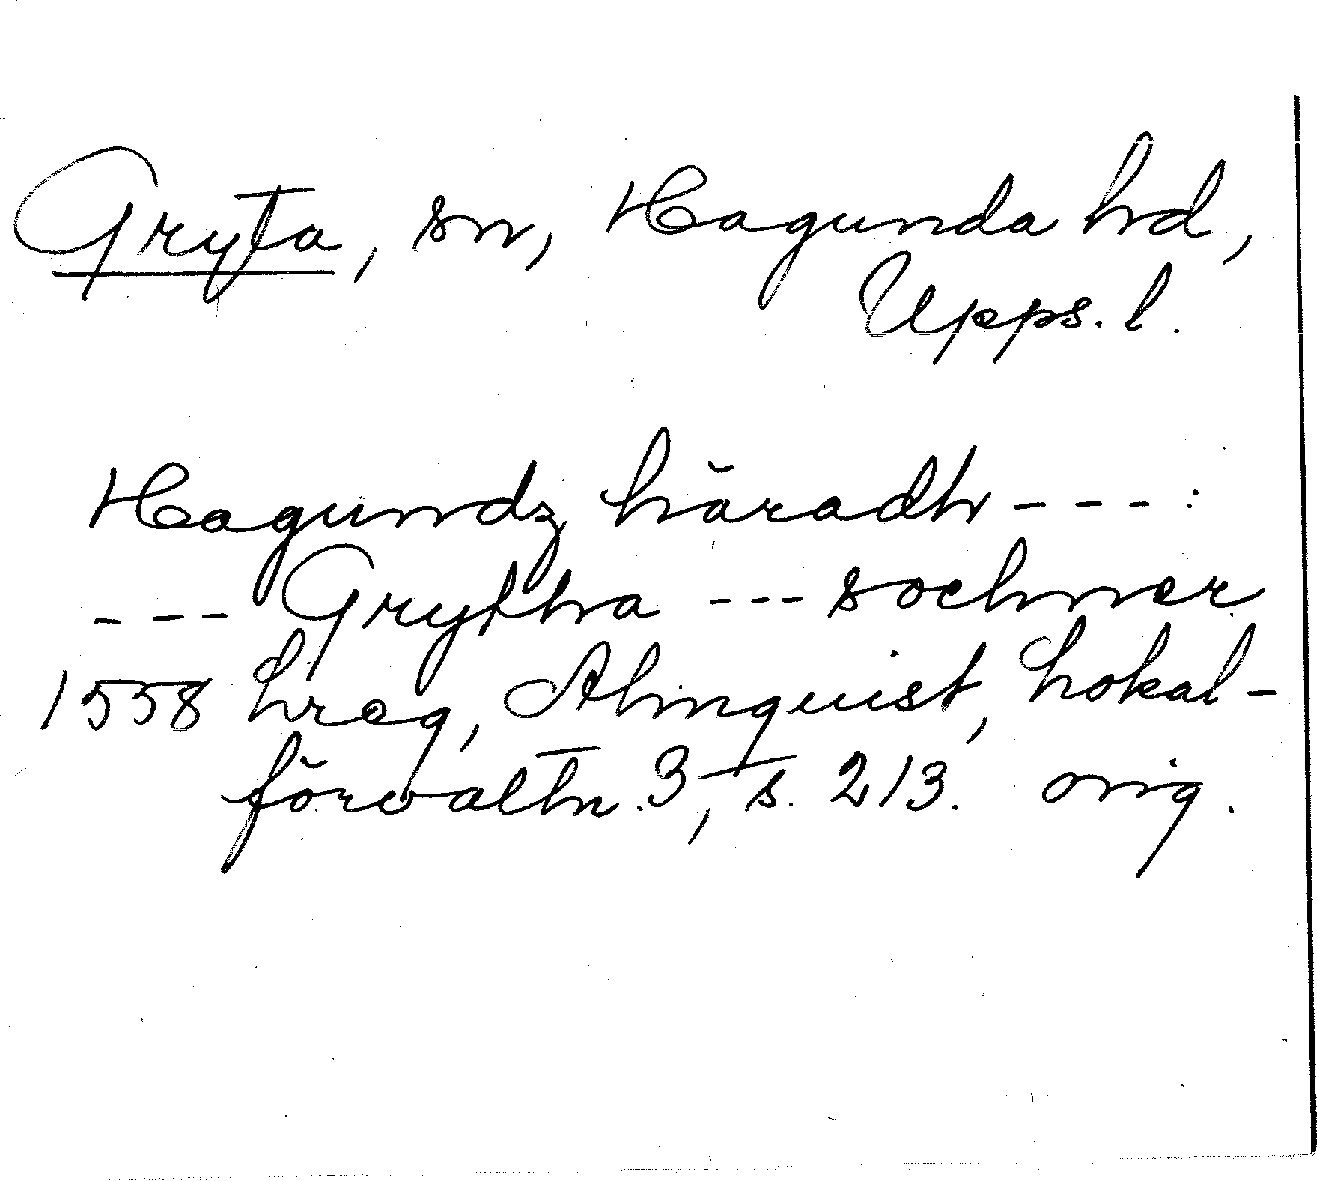 Gryta, sn, Hagunda hd,
Upps. l.
Hagundz häradh - - - :
- - - Grytha - - - sochner
1558 Lreg, Almquist, Lokal-
förvaltn. 3, s. 213. orig.